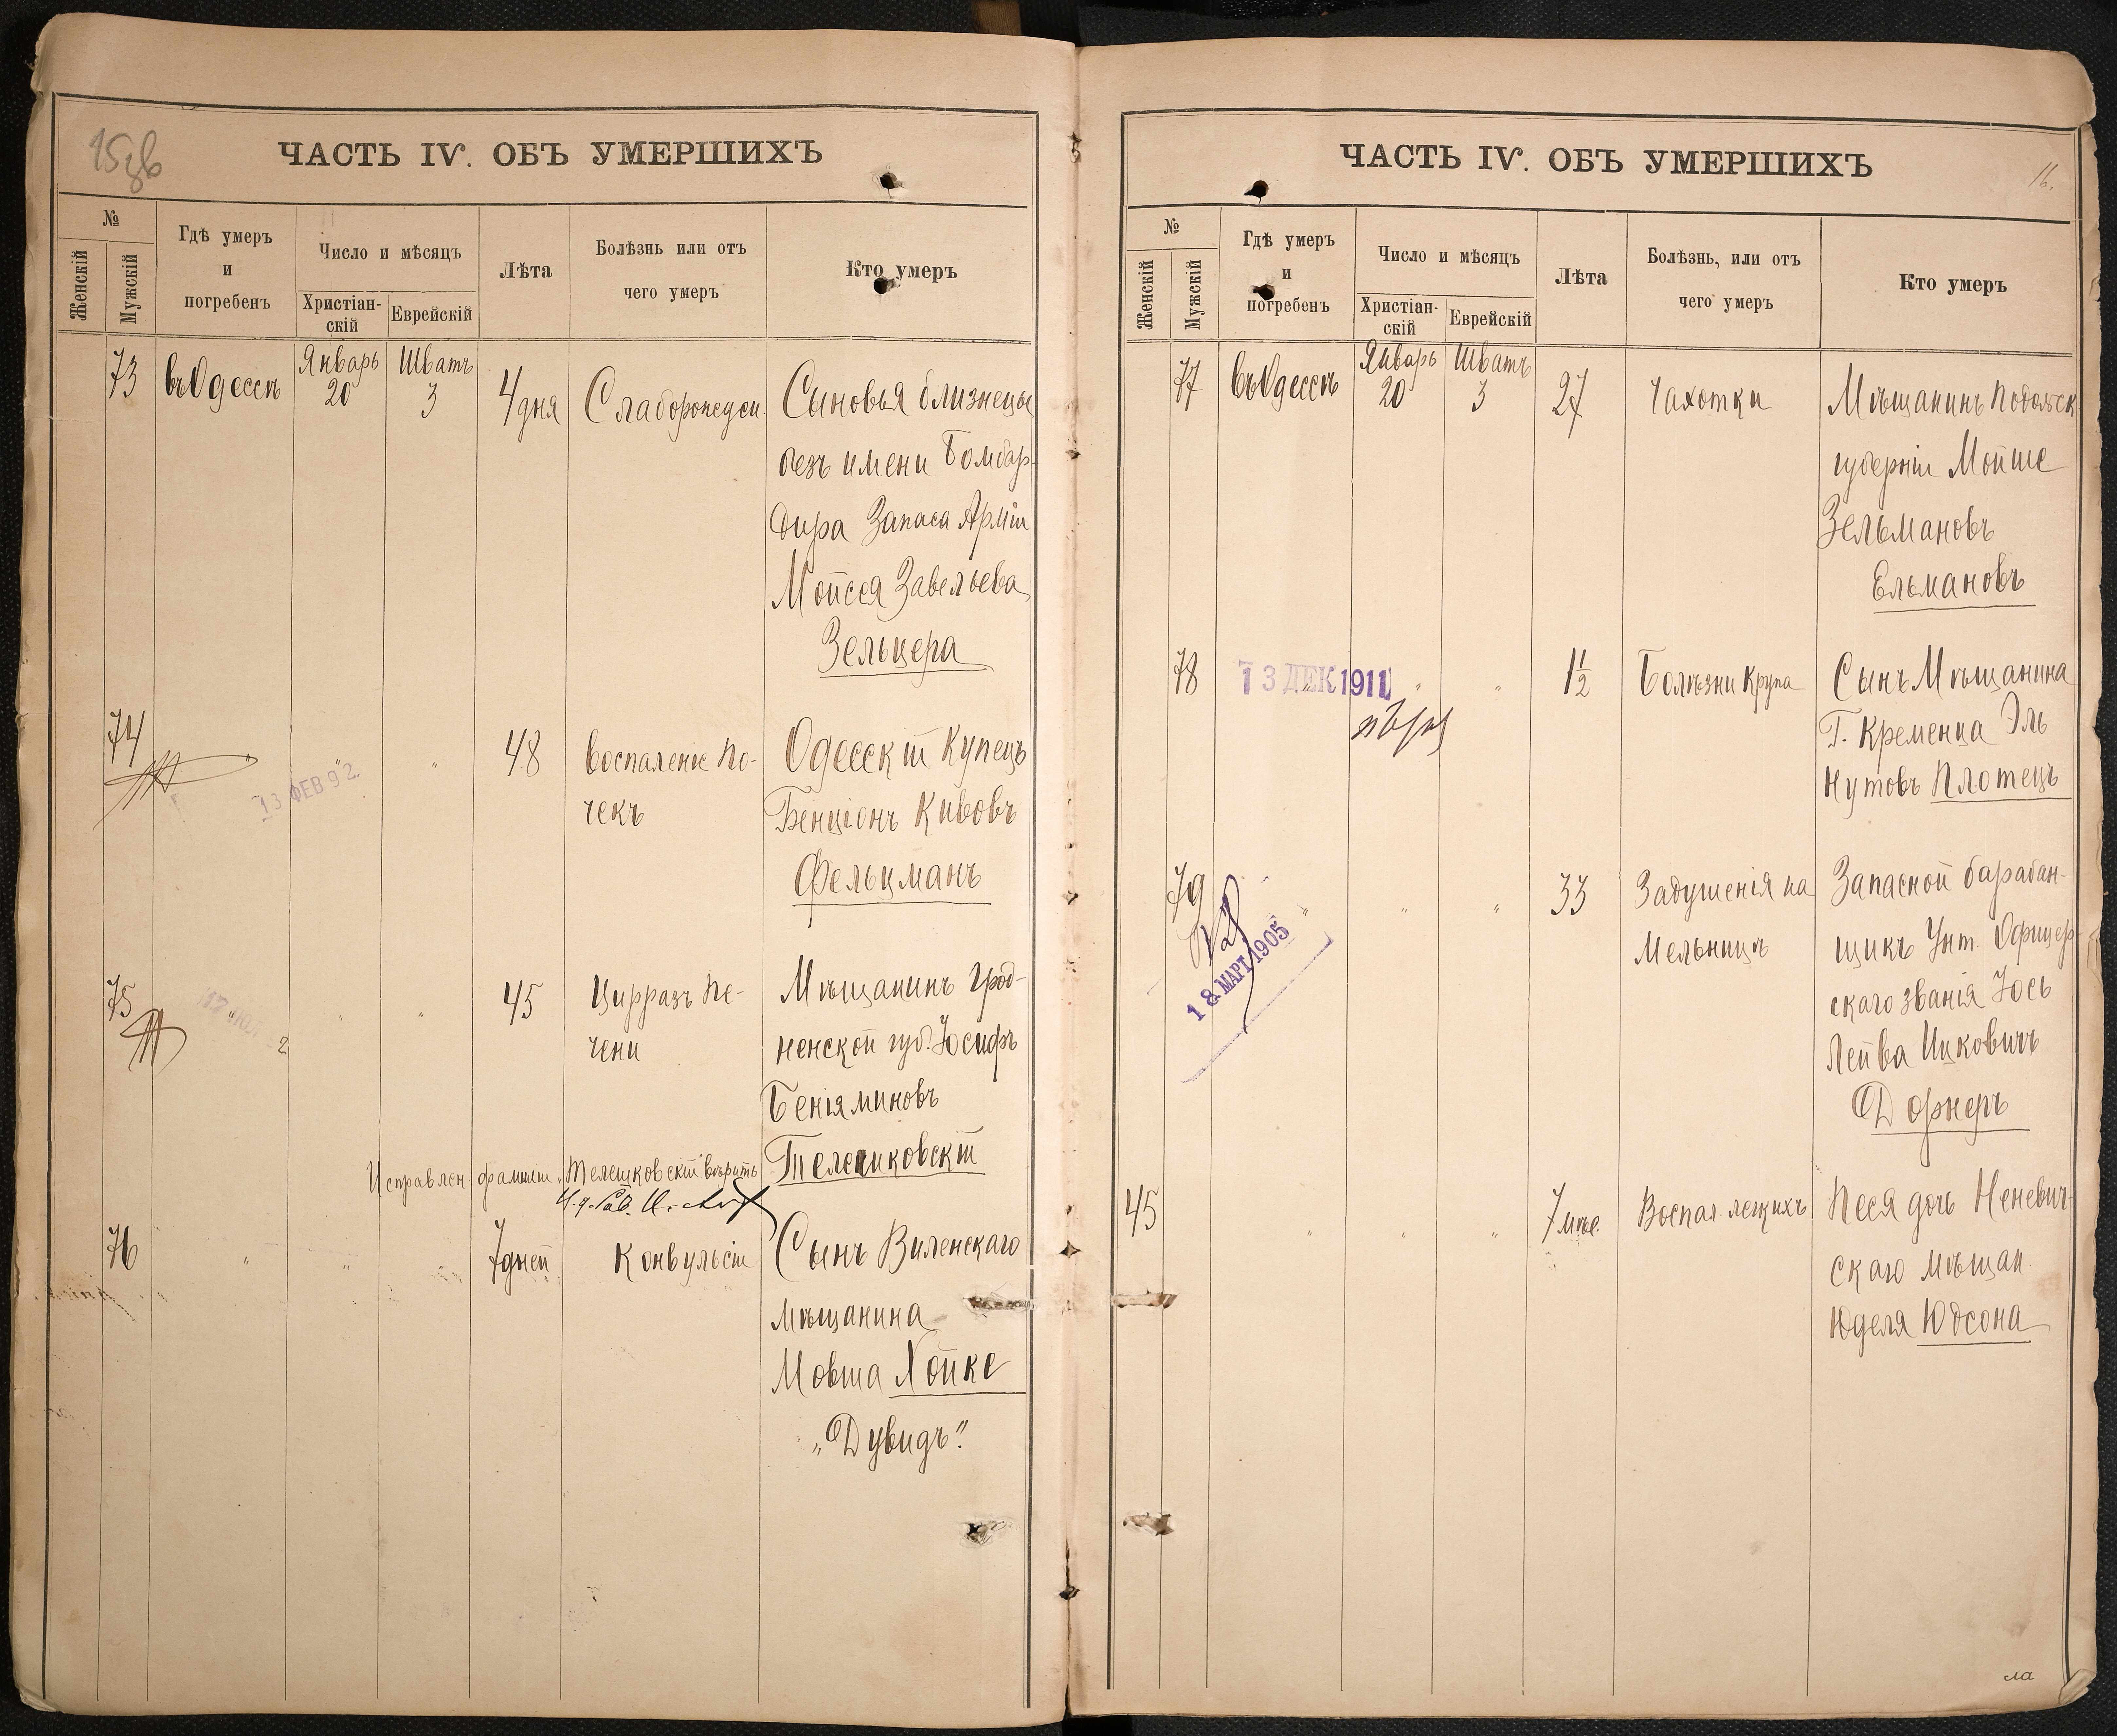 ЧАСТЬ IV. ОБЪ УМЕРШИХЪ
№
Женскій
Мужскій
Гдѣ умеръ
и
погребенъ
Число и мѣсяцъ
Христіан-
скій
Еврейскій
Лѣта
Болѣзнь или отъ
чего умеръ
Кто умеръ
73 въ Одессѣ Январь 20 Шватъ 3 4 дня Сыновья близнецы
безъ имени Бомбар-
дира Запаса Арміи
Мойсея Завельева
Зельцера
74 " " 48 Воспаленіе По- Одесскій Купецъ
13 ФЕВ 912
чекъ Бенціонъ Кивовъ
Фельцманъ
75 " " " 45 Цирразъ Пе- Мѣщанинъ Грод-
чени ненской губ. Іосифъ
Беніяминовъ
Исправлен фамиліи „Телешковскій" вѣрить
76 " " " 7 дней Конвульсіи Сынъ Виленскаго
мѣщанина
Мовша Хойке
„Дувидъ".
ЧАСТЬ IV. ОБЪ УМЕРШИХЪ
16.
№
Женскій
Мужскій
Гдѣ умеръ
и
погребенъ
Число и мѣсяцъ
Христіан-
скій
Еврейскій
Лѣта
Болѣзнь, или отъ
чего умеръ
Кто умеръ
77 въ Одессѣ Январь 20 Шватъ 3 27 Чахотки Мѣщанинъ Подольск
губерніи Мойше
Зельмановъ
Ельмановъ
78 " " " 1½ Болѣзни Крупа Сынъ Мѣщанина
13 ДЕК 1911
Г. Кременца Эль
Нутовъ Плотецъ
79 " " " 33 Задушенія на Запасной барабан-
18 МАРТ 1905
Мельницѣ щикъ Унт. Офицер-
скаго званія Іось
Лейва Ицковичъ
Дорнеръ
45 " " " 7 мѣс. Воспал. легкихъ Песя дочь
скаго мѣщан.
Юделя Юдсона
ла